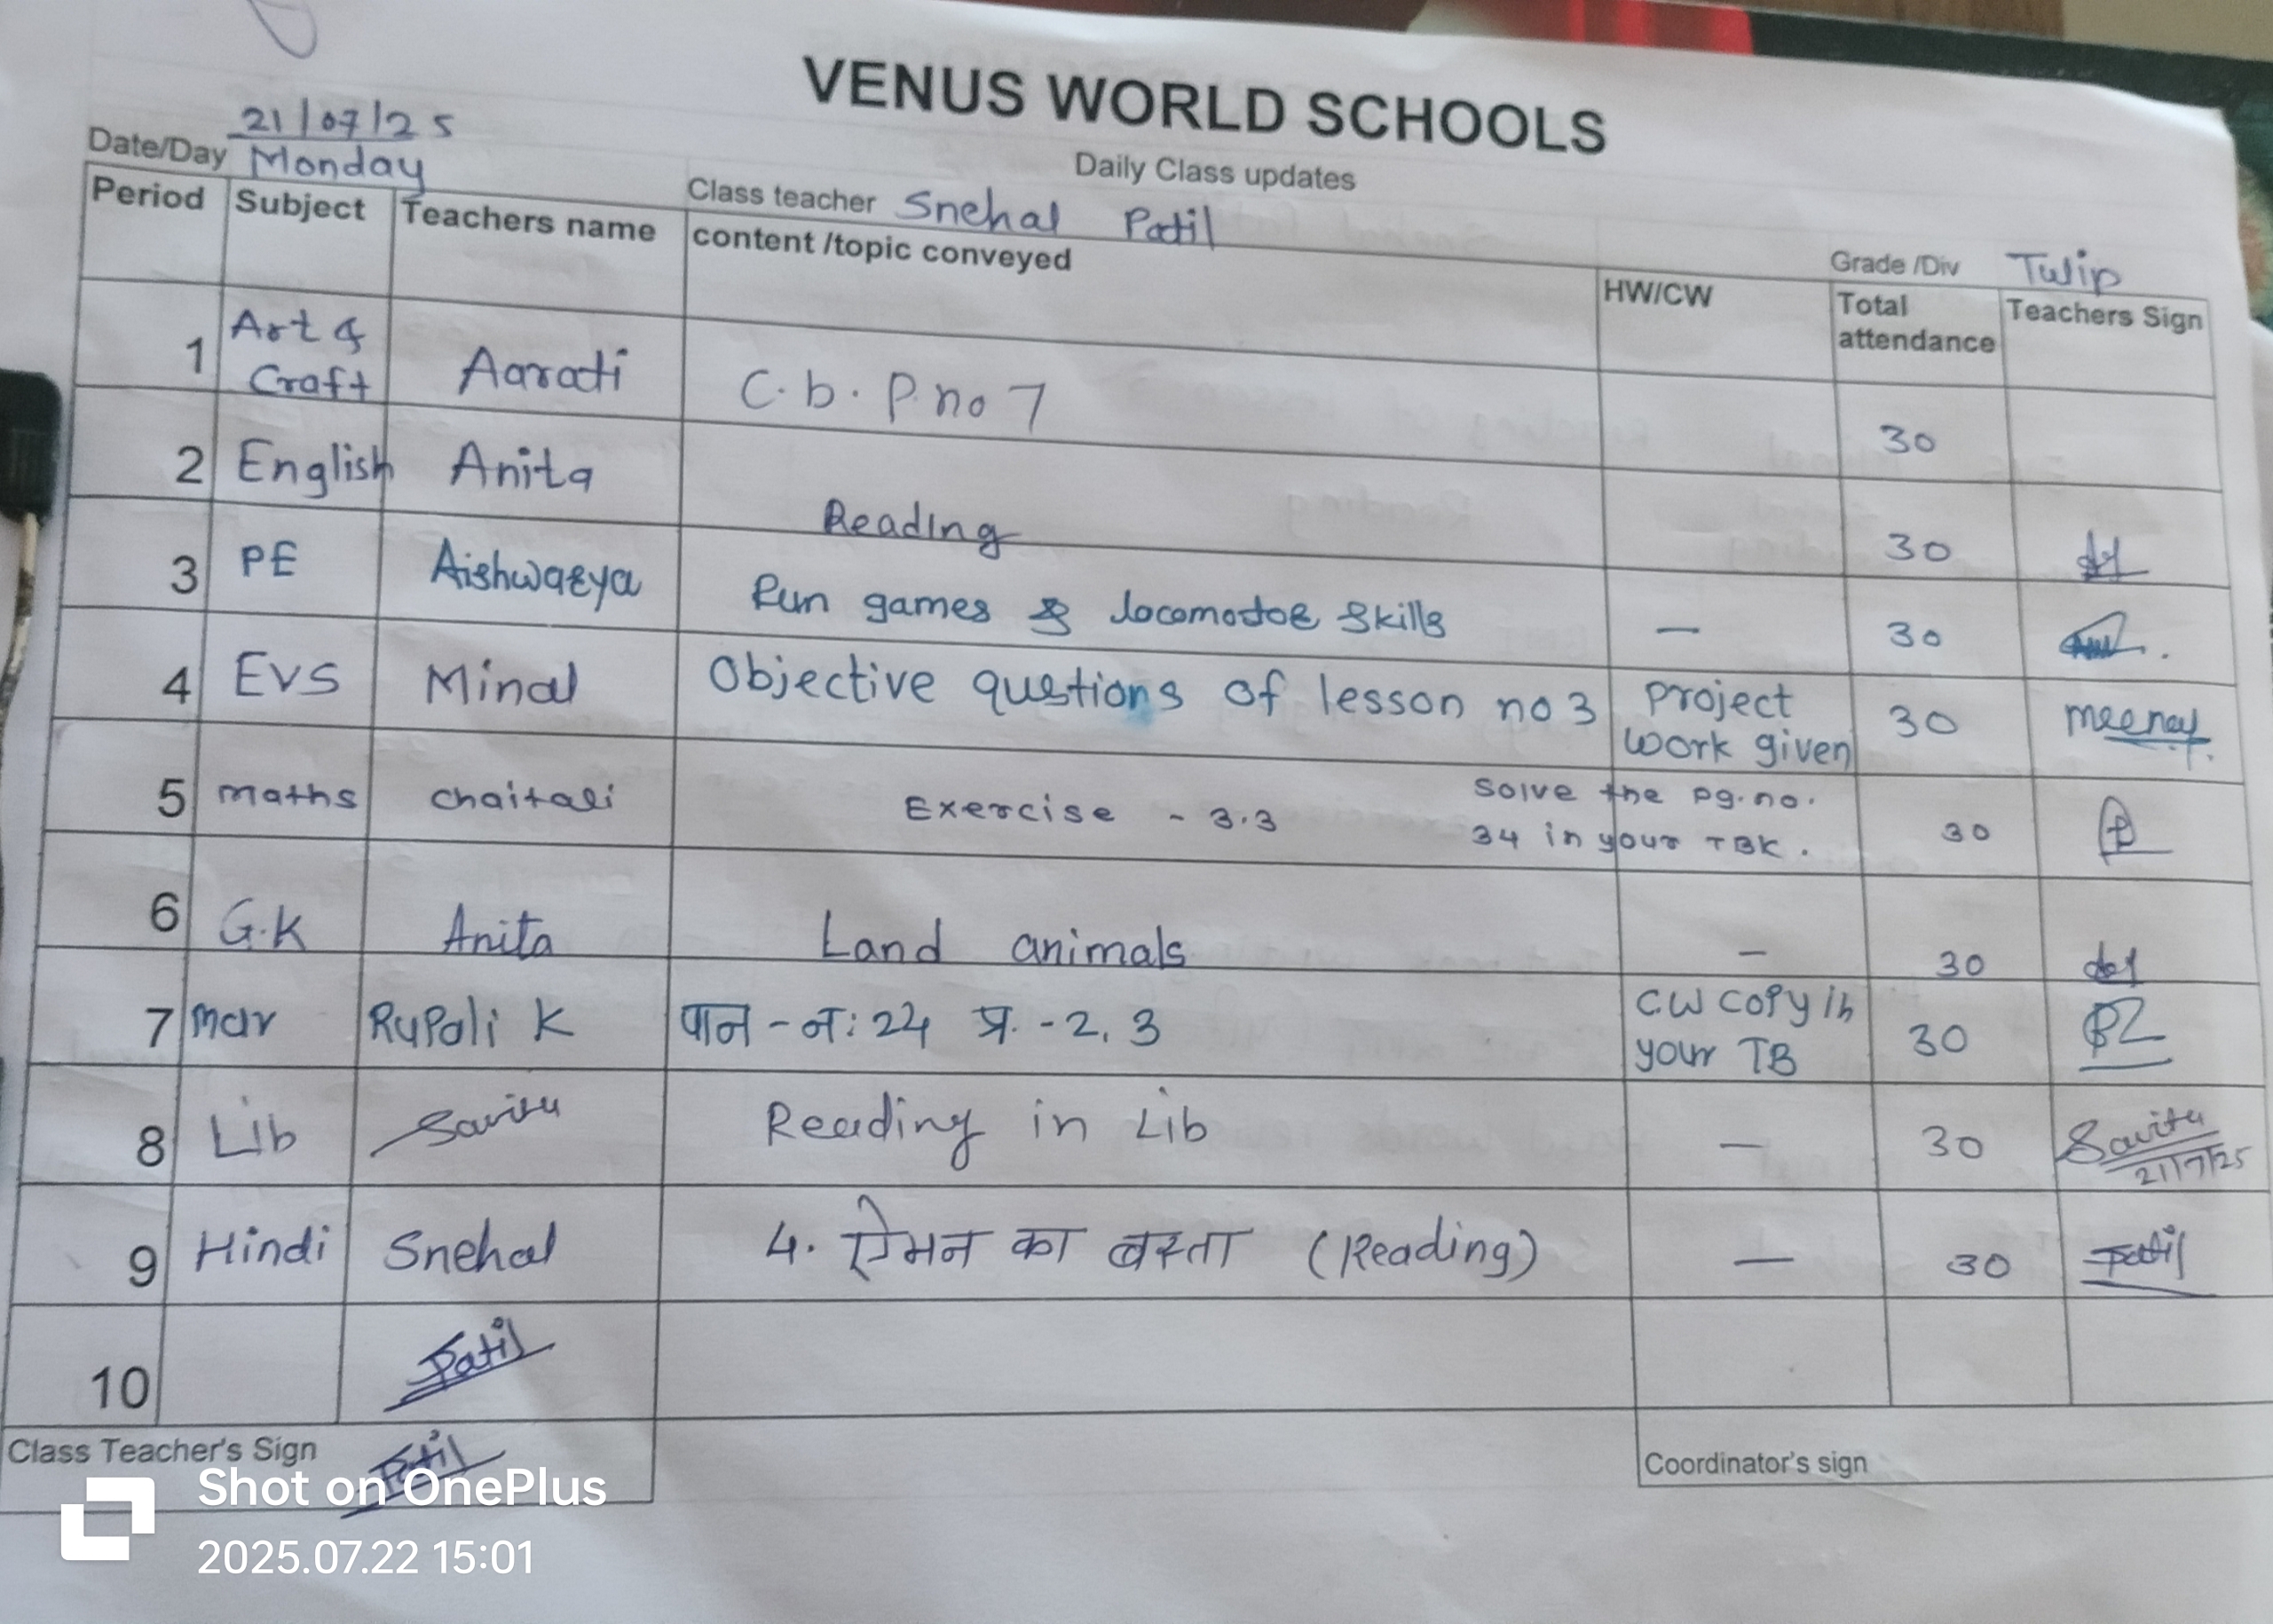 VENUS WORLD SCHOOLS
Daily Class updates
21/07/25
Date/Day Monday
Class teacher Snehal Patil
Grade /Div Tulip
Period Subject Teachers name content /topic conveyed HW/CW Total attendance Teachers Sign
1 Art & Craft Aarati C.b. P.no 7 30
2 English Anita Reading 30
3 PE Aishwarya Fun games & locomotor skills — 30
4 EVS Minal Objective questions of lesson no 3 project work given 30
5 maths chaitali Exercise - 3.3 Solve the pg.no. 34 in your TBK. 30
6 G.K Anita Land animals — 30
7 mar Rupali K पान - न: 24 प्र. - 2, 3 CW copy in your TB 30
8 Lib Savita Reading in Lib — 30 Savita 21/7/25
9 Hindi Snehal 4. ऐमन का बस्ता (Reading) — 30 Patil
10 Patil
Class Teacher's Sign Patil
Coordinator's sign
Shot on OnePlus
2025.07.22 15:01